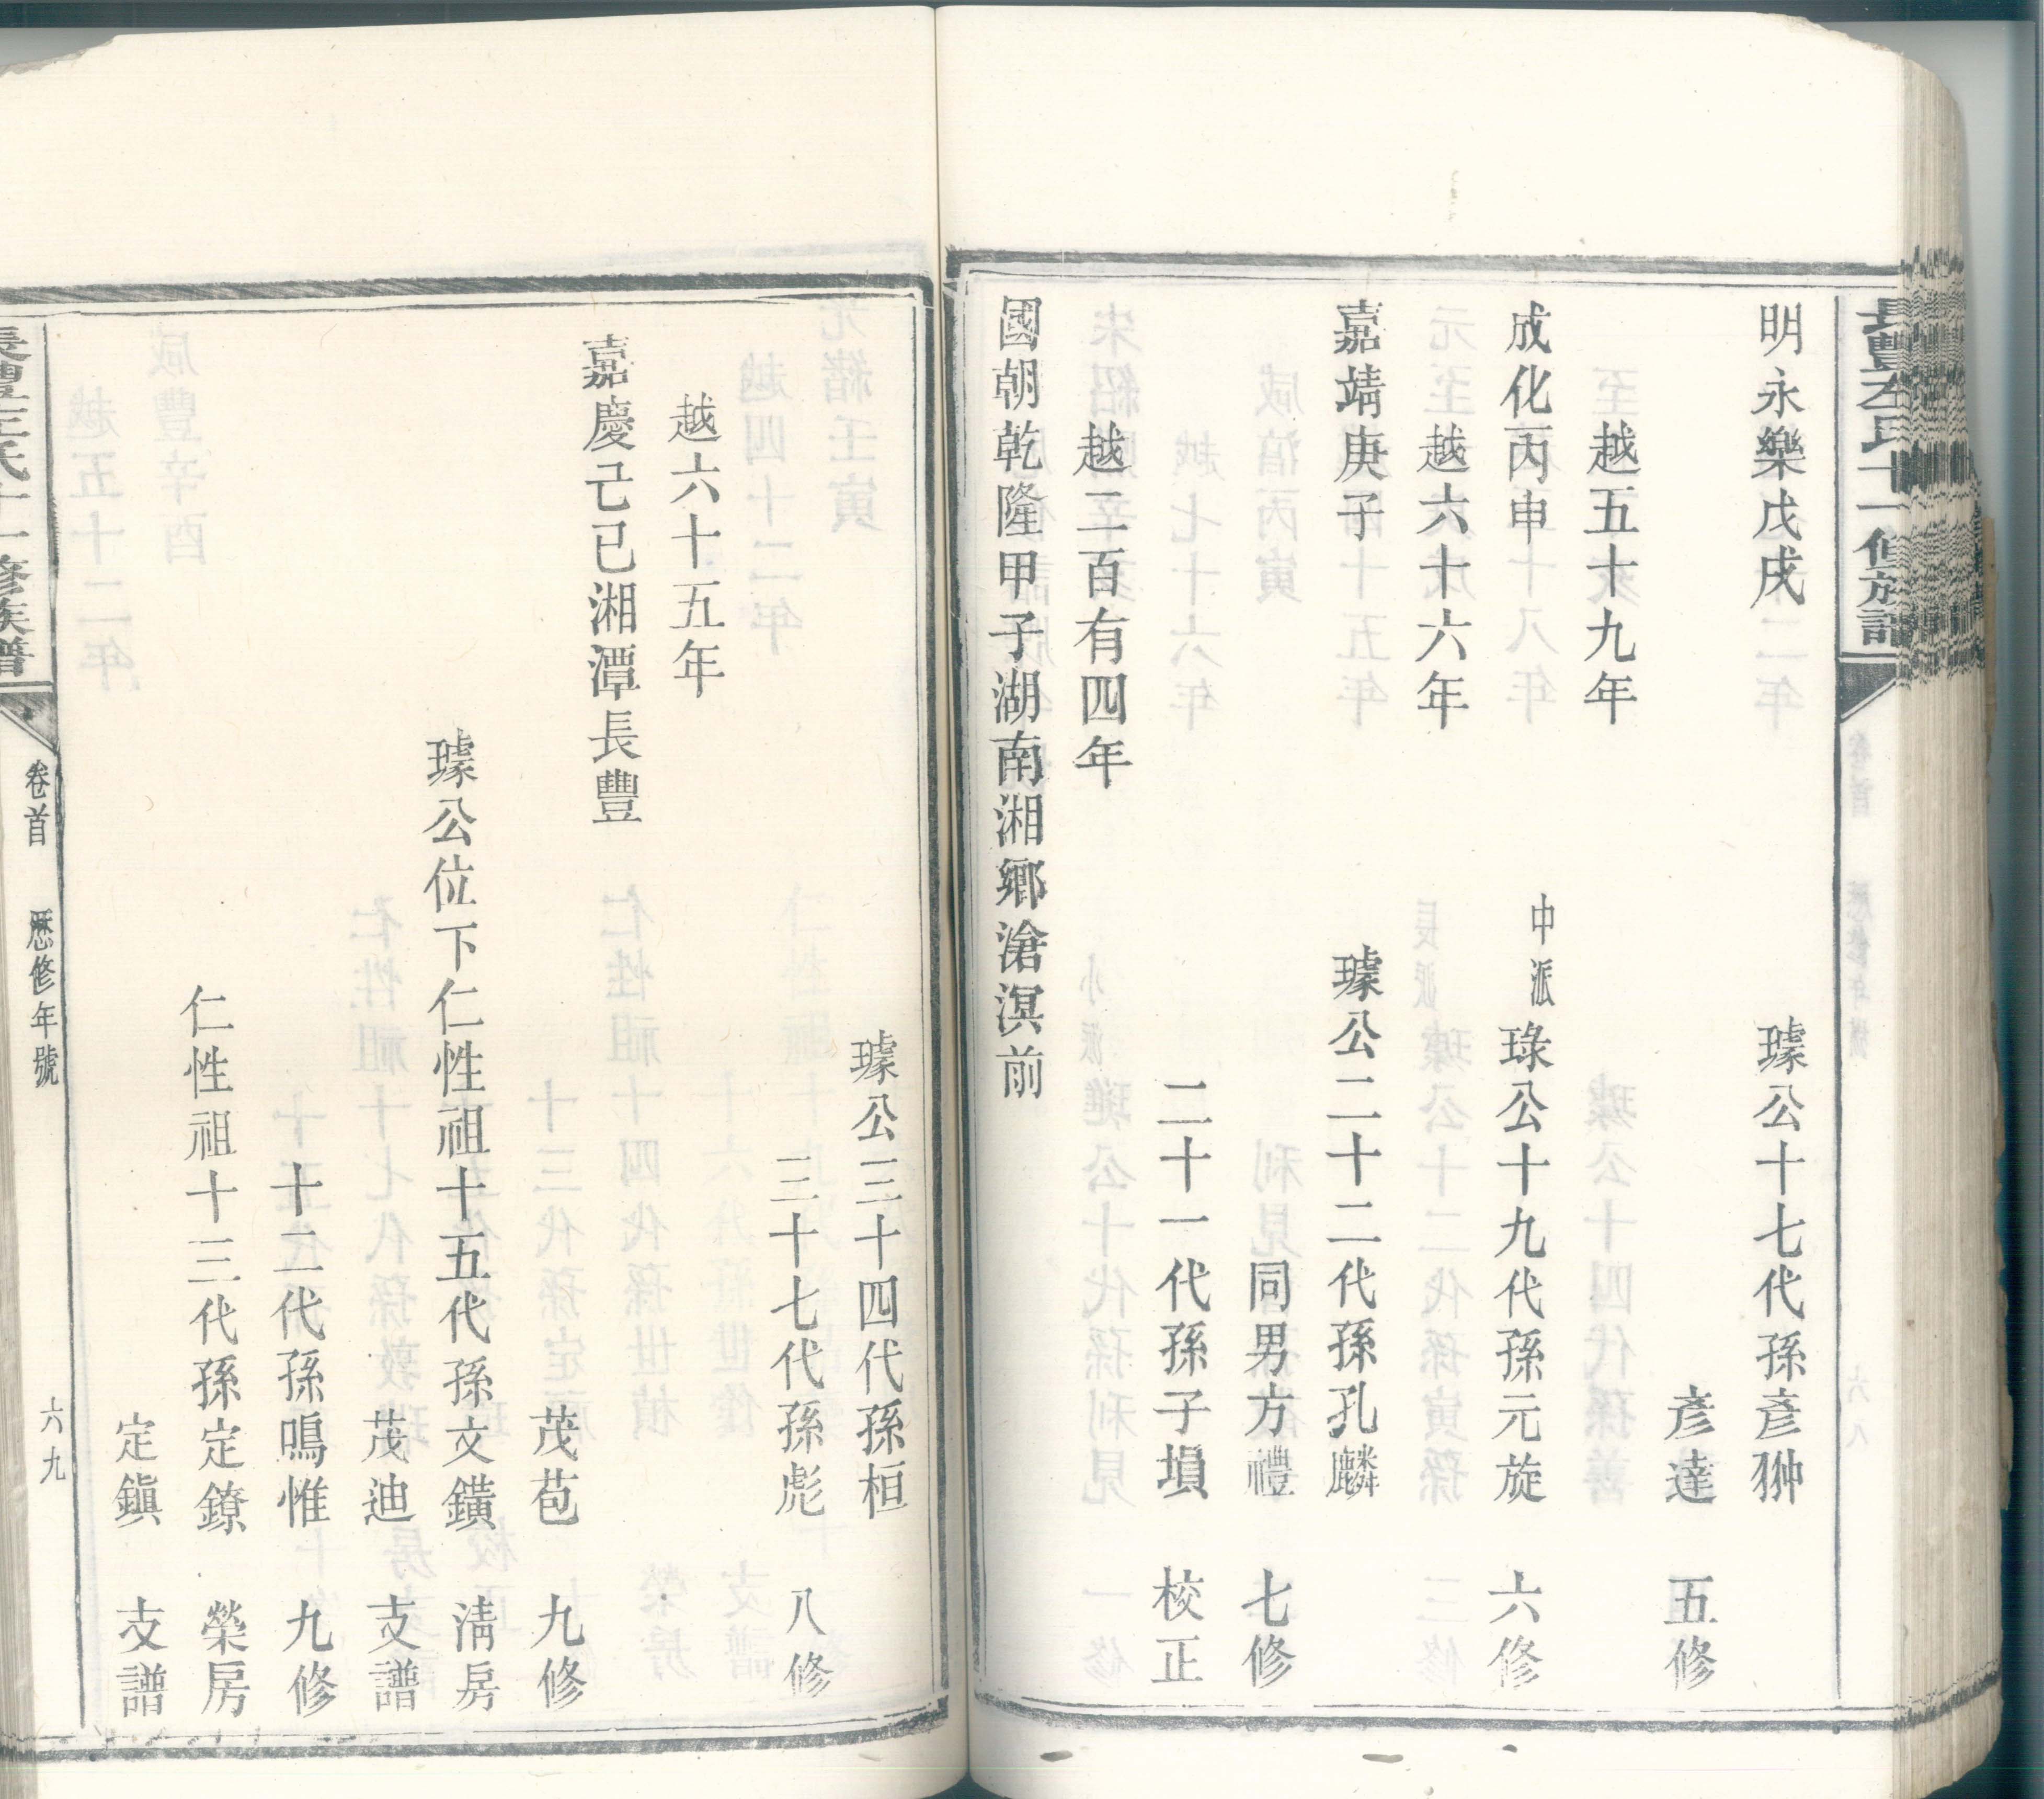 長豐左氏十一修族譜
明永樂戊戌
璩公十七代孫彥翀
彥達　五修
越五十九年
成化丙申
中派　琭公十九代孫元旋　六修
越六十六年
嘉靖庚子
璩公二十二代孫孔麟
同男方禮　七修
二十一代孫子塤　校正
越二百有四年
國朝乾隆甲子湖南湘鄉滄溟前
璩公三十四代孫桓
三十七代孫彪　八修
越六十五年
嘉慶己巳湘潭長豐
茂苞　九修
璩公位下仁性祖十五代孫文鐄　清房
茂迪　支譜
十二代孫鳴惟　九修
仁性祖十三代孫定鐐　榮房
定鎭　支譜
長豐左氏十一修族譜　卷首　歷修年號　六九